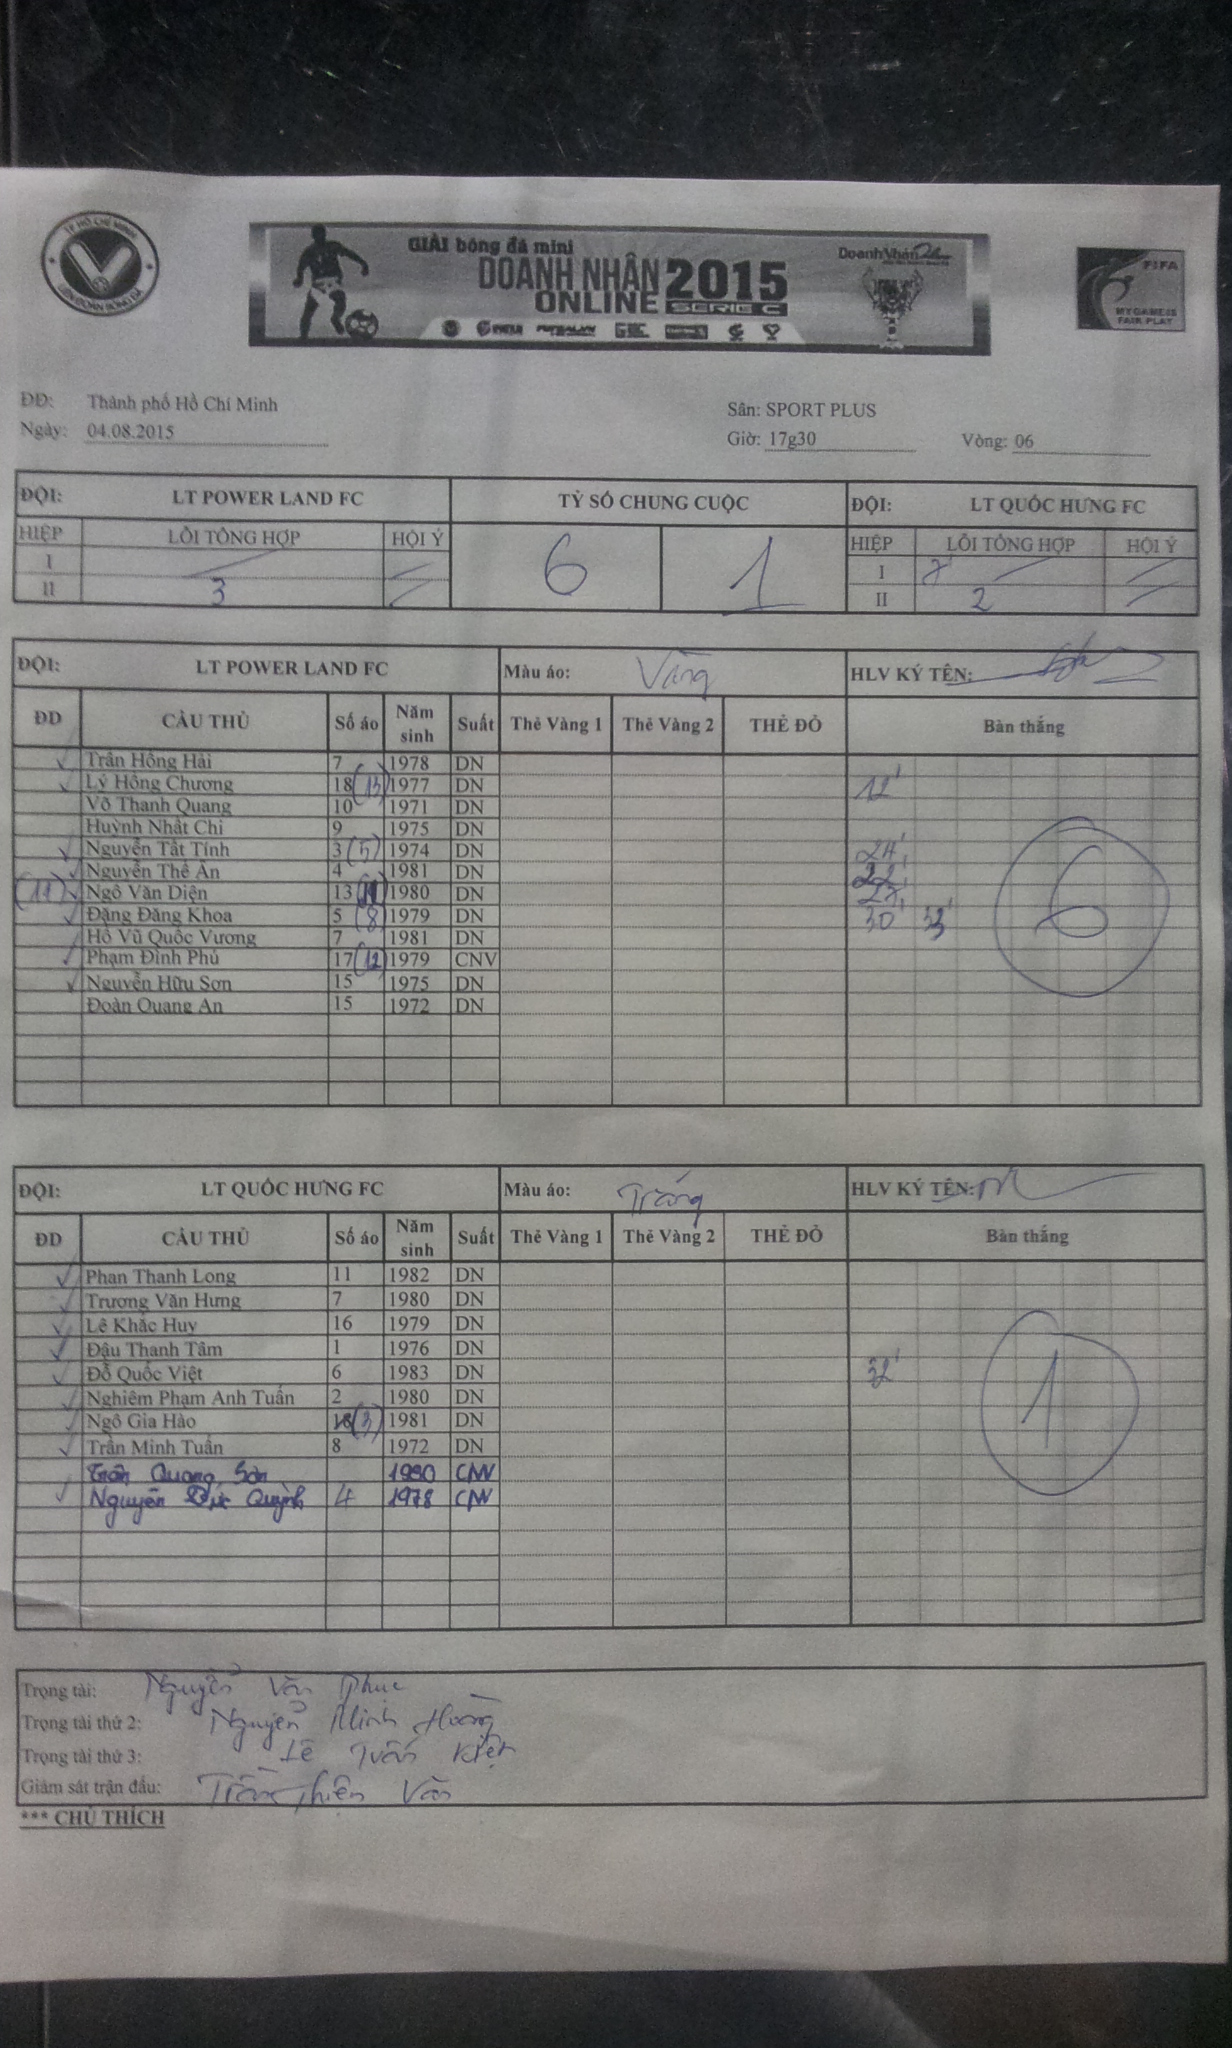 TP HỒ CHÍ MINH
LIÊN ĐOÀN BÓNG ĐÁ
GIẢI bóng đá mini
DOANH NHÂN 2015
ONLINE SERIE C
DoanhNhân
FIFA
MY GAME IS
FAIR PLAY
ĐĐ: Thành phố Hồ Chí Minh
Sân: SPORT PLUS
Ngày: 04.08.2015
Giờ: 17g30 Vòng: 06
ĐỘI: LT POWER LAND FC TỶ SỐ CHUNG CUỘC ĐỘI: LT QUỐC HƯNG FC
HIỆP LỖI TỔNG HỢP HỘI Ý 6 1 HIỆP LỖI TỔNG HỢP HỘI Ý
I I
II 3 II 2
ĐỘI: LT POWER LAND FC Màu áo: Vàng HLV KÝ TÊN:
ĐD CẦU THỦ Số áo Năm sinh Suất Thẻ Vàng 1 Thẻ Vàng 2 THẺ ĐỎ Bàn thắng
✓ Trần Hồng Hải 7 1978 DN
✓ Lý Hồng Chương 18 (13) 1977 DN 12'
Võ Thanh Quang 10 1971 DN
Huỳnh Nhất Chi 9 1975 DN
✓ Nguyễn Tất Tính 3 (5) 1974 DN 24'
✓ Nguyễn Thế Ân 4 1981 DN 22'
(11) ✓ Ngô Văn Diện 13 1980 DN 27'
✓ Đặng Đăng Khoa 5 (8) 1979 DN 30'
Hồ Vũ Quốc Vương 7 1981 DN
✓ Phạm Đình Phú 17 (12) 1979 CNV
✓ Nguyễn Hữu Sơn 15 1975 DN
Đoàn Quang An 15 1972 DN
6
ĐỘI: LT QUỐC HƯNG FC Màu áo: Trắng HLV KÝ TÊN:
ĐD CẦU THỦ Số áo Năm sinh Suất Thẻ Vàng 1 Thẻ Vàng 2 THẺ ĐỎ Bàn thắng
✓ Phan Thanh Long 11 1982 DN
✓ Trương Văn Hưng 7 1980 DN
✓ Lê Khắc Huy 16 1979 DN
✓ Đậu Thanh Tâm 1 1976 DN
✓ Đỗ Quốc Việt 6 1983 DN 32'
✓ Nghiêm Phạm Anh Tuấn 2 1980 DN
✓ Ngô Gia Hảo 18 (3) 1981 DN
✓ Trần Minh Tuấn 8 1972 DN
Trần Quang Sơn 1980 CNV
✓ Nguyễn Đức Quỳnh 4 1978 CNV
1
Trọng tài: Nguyễn Văn Phục
Trọng tài thứ 2: Nguyễn Minh Hoàng
Trọng tài thứ 3: Lê Tuấn Kiệt
Giám sát trận đấu: Trần Thiện Văn
*** CHÚ THÍCH